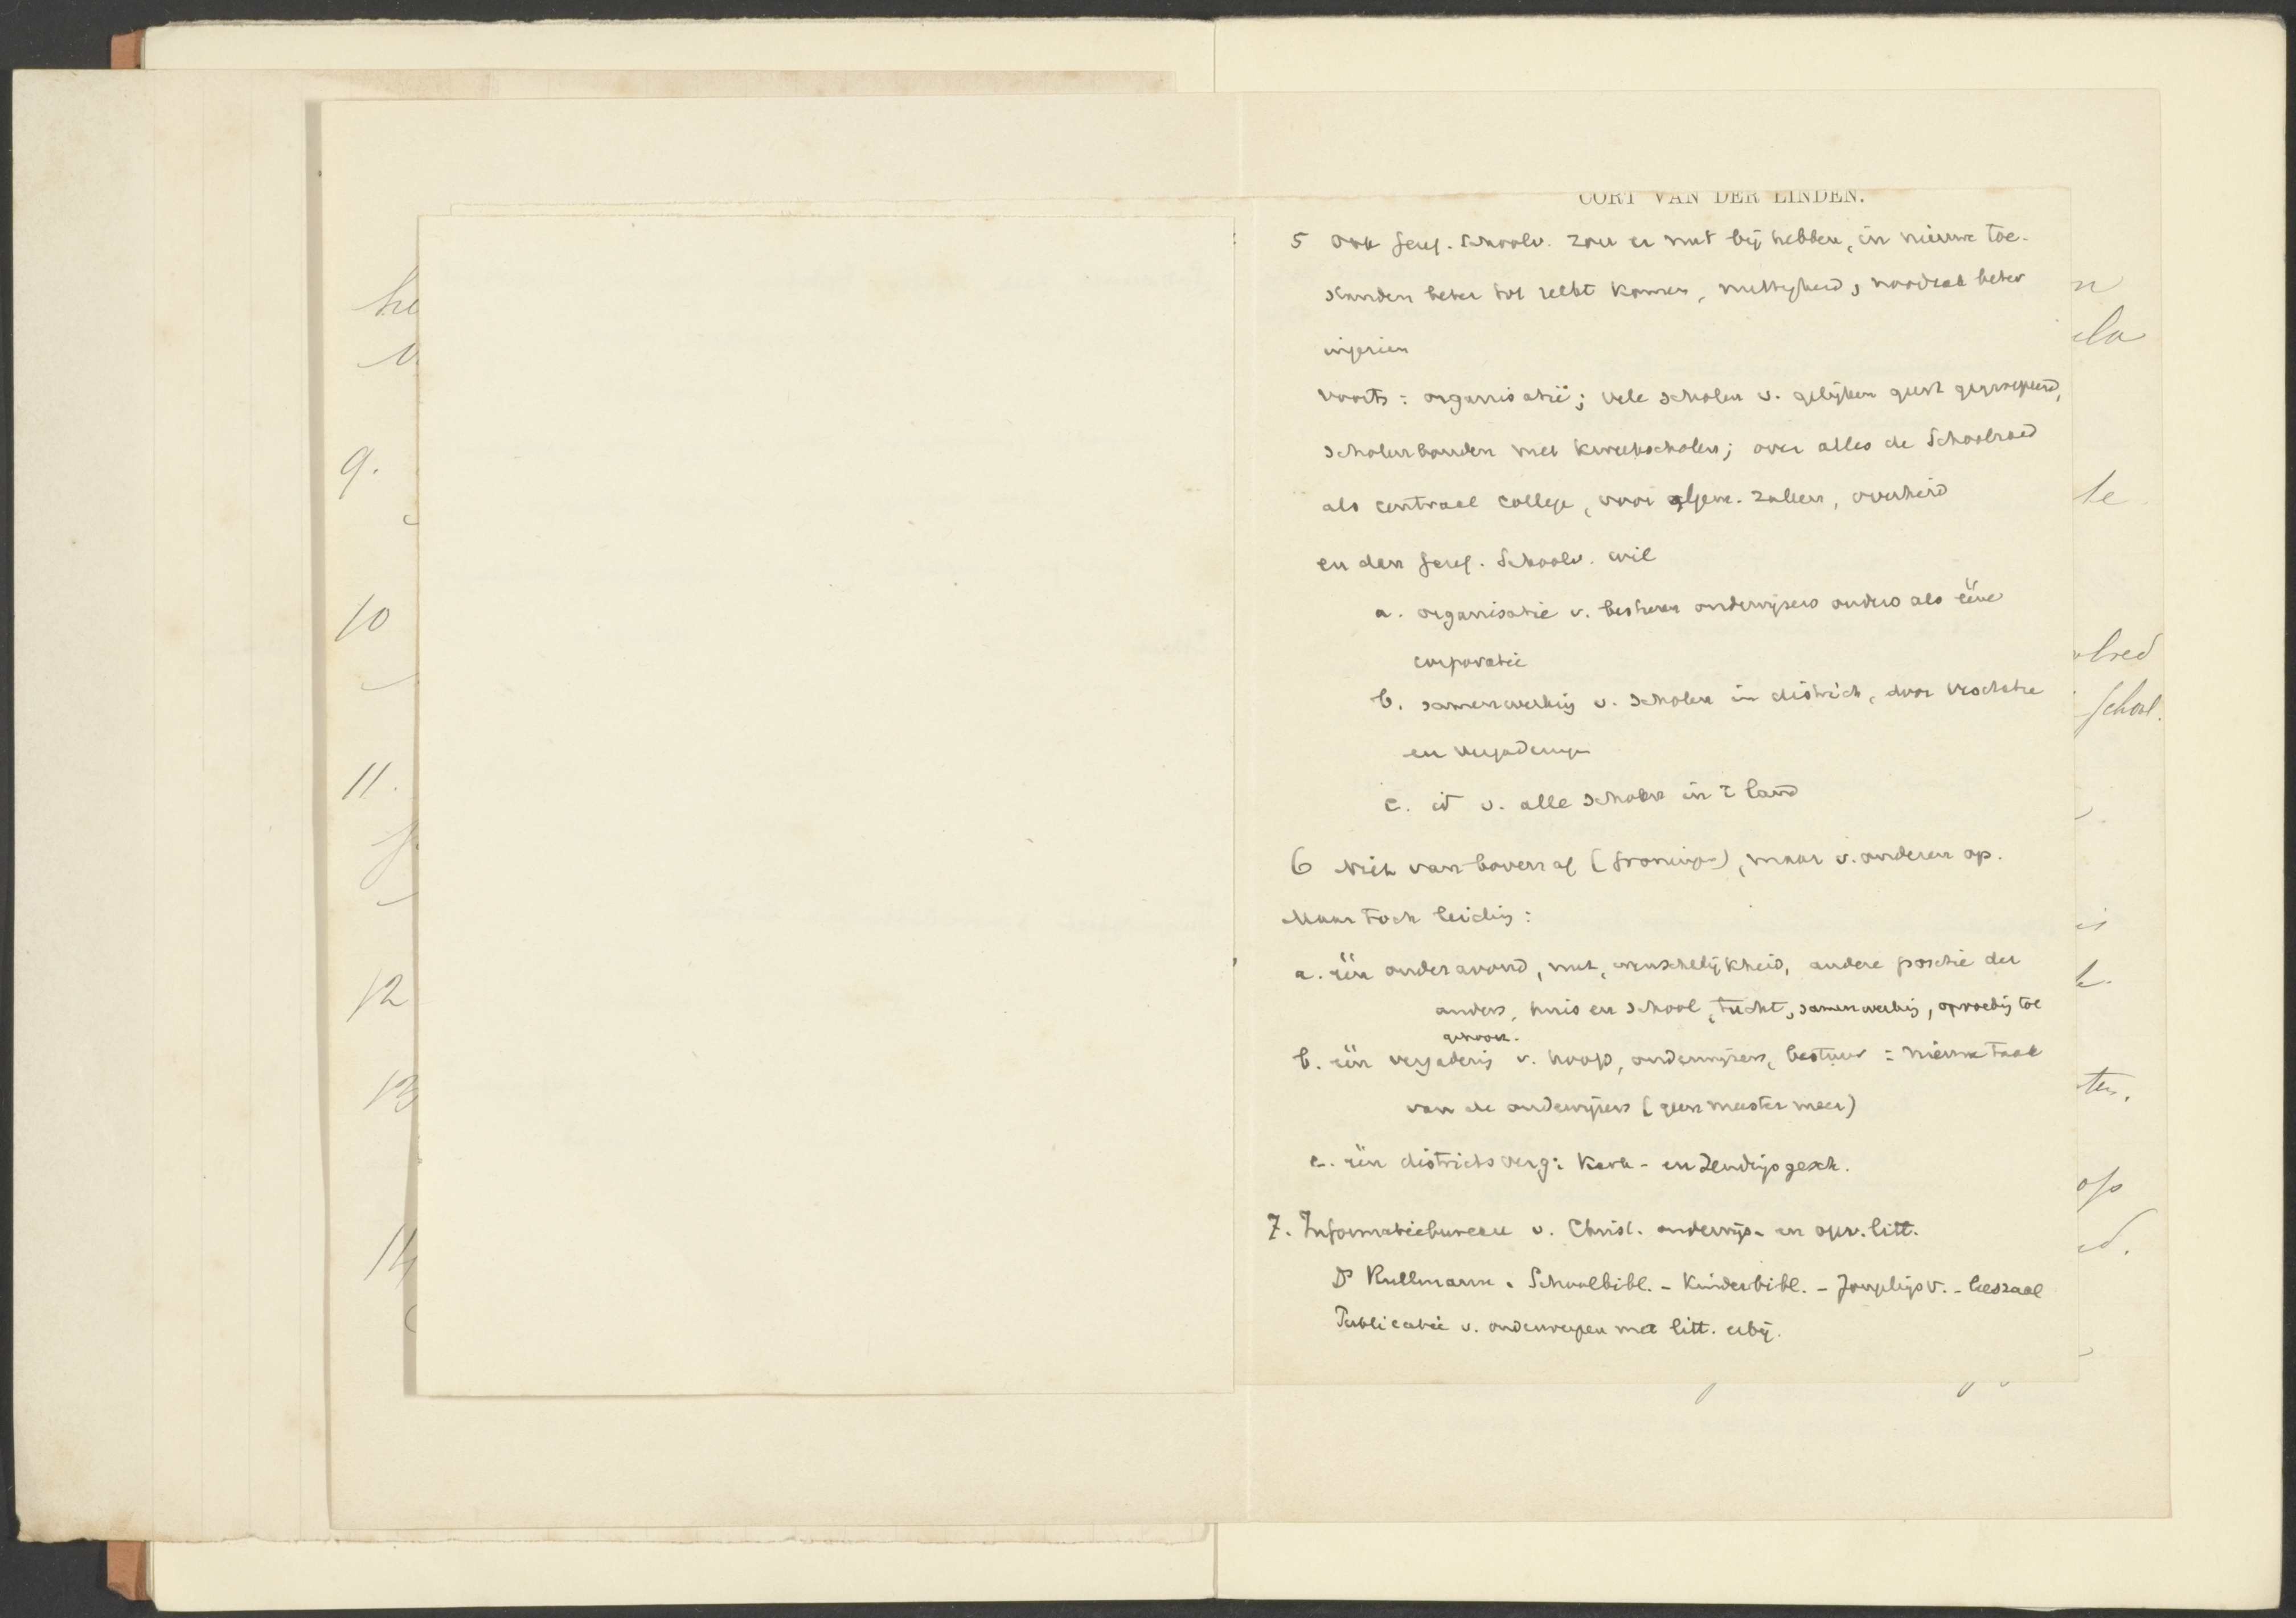 he
9.
10
11.
12
13
14
CORT VAN DER LINDEN.
5 Ook Geref. Schoolv. zou er nut bij hebben, in nieuwe toe-
standen beter tot recht komen, nuttigheid, noodzaak beter
ingezien
voorts: organisatie; vele scholen v. gelijken geest gegroepeerd,
scholenbonden met kweekscholen; over alles de Schoolraad
als centraal college, voor algem. zaken, overheid
en den Geref. Schoolv. wil
a. organisatie v. besturen onderwijzers ouders als ééne
corporatie
b. samenwerking v. scholen in district, door
en vergaderingen
c. id v. alle scholen in 't land
6 Niet van bovenaf (Groningen), maar v. onderen op.
Maar toch leiding:
a. één ouderavond, nut, wenschelijkheid, andere positie der
ouders, huis en school, tucht, samenwerking, opvoeding tot
gehoorz.
b. één vergadering v. hoofd, onderwijzers, bestuur = nieuwe taak
van de onderwijzers (geen meester meer)
c. één districtsverg: Kerk- en Zendingsgesch.
7. Informatiebureau v. Christ. onderwijs- en opv. litt.
Ds Kullmann. Schoolbibl. - Kinderbibl. - Jongelings v. - leeszaal
Publicatie v. onderwerpen met litt. erbij.
n
ela
te
School.
is
k.
ten.
op
ed.